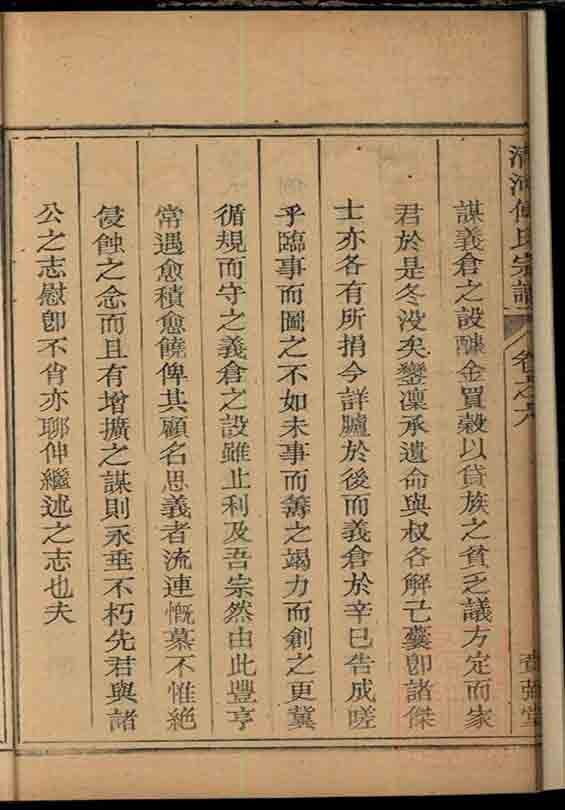 清河傅氏宗譜 卷之六
謀義倉之設醵金買穀以貸族之貧乏議方定而家
君於是冬没矣鑾凜承遺命與叔各解己囊卽諸傑
士亦各有所捐今詳臚於後而義倉於辛巳告成嗟
乎臨事而圖之不如未事而籌之竭力而創之更冀
循規而守之義倉之設雖止利及吾宗然由此豐亨
常遇愈積愈饒俾其顧名思義者流連慨慕不惟絶
侵蝕之念而且有增擴之謀則永垂不朽先君與諸
公之志慰卽不肖亦聊伸繼述之志也夫